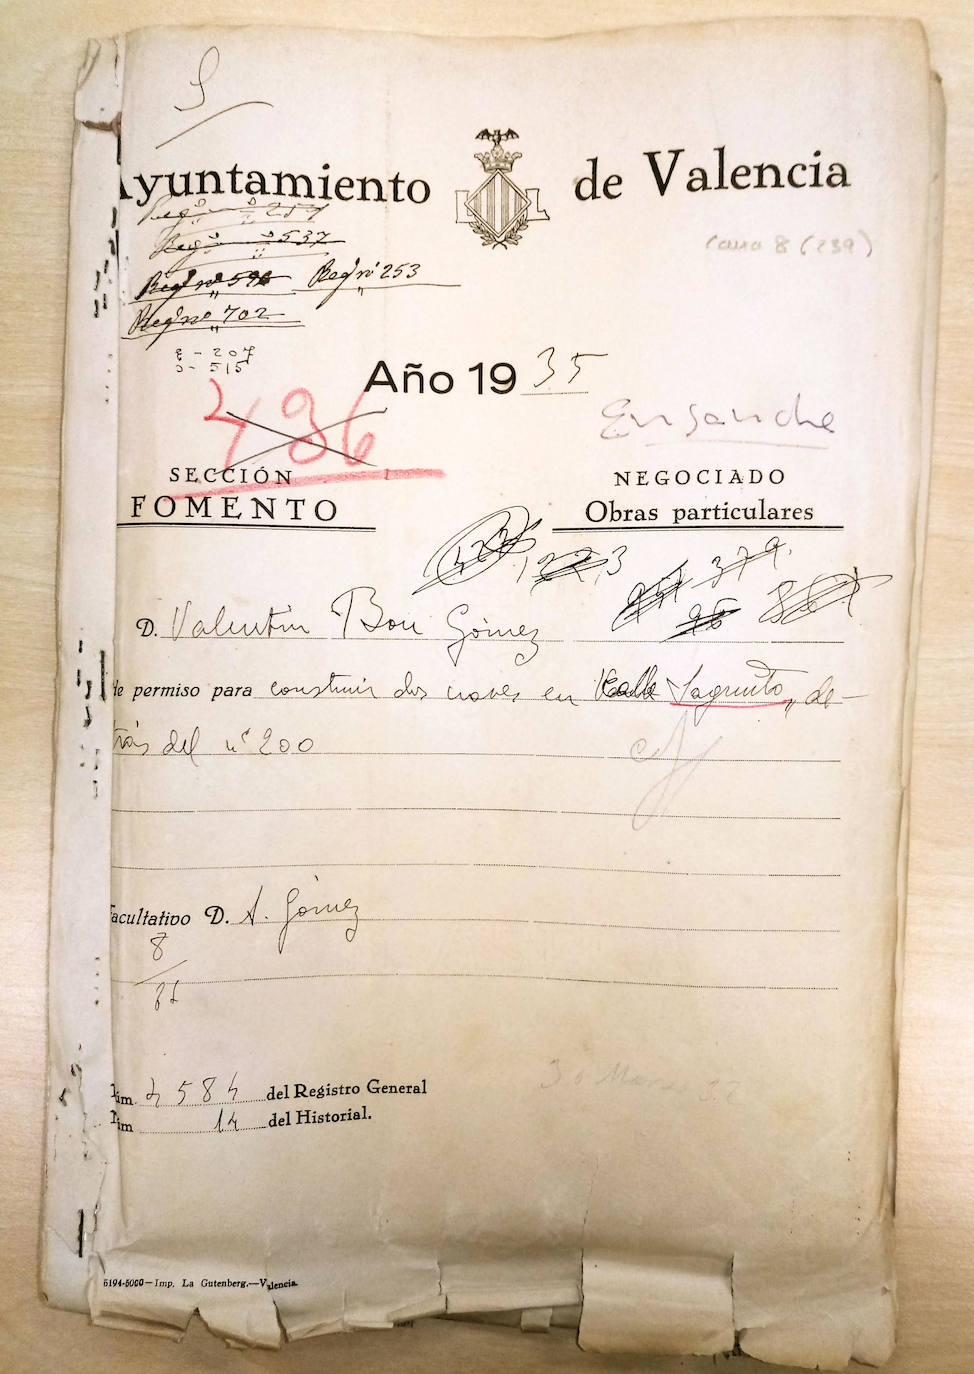 S
Ayuntamiento de Valencia
Regº nº 257
Regº nº 537
Caixa 8 (239)
Regº nº 596 Regº nº 253
Regº nº 702
E - 207
S - 515
Año 1935
486
Ensanche
SECCIÓN
FOMENTO
NEGOCIADO
Obras particulares
379.
D. Valentin Bou Gómez
de permiso para construir dos naves en Calle Sagunto, de-
trás del nº 200
Facultativo D. A. Gómez
8
Núm. 4584 del Registro General
Núm 14 del Historial.
5194-5000—Imp. La Gutenberg.—Valencia.